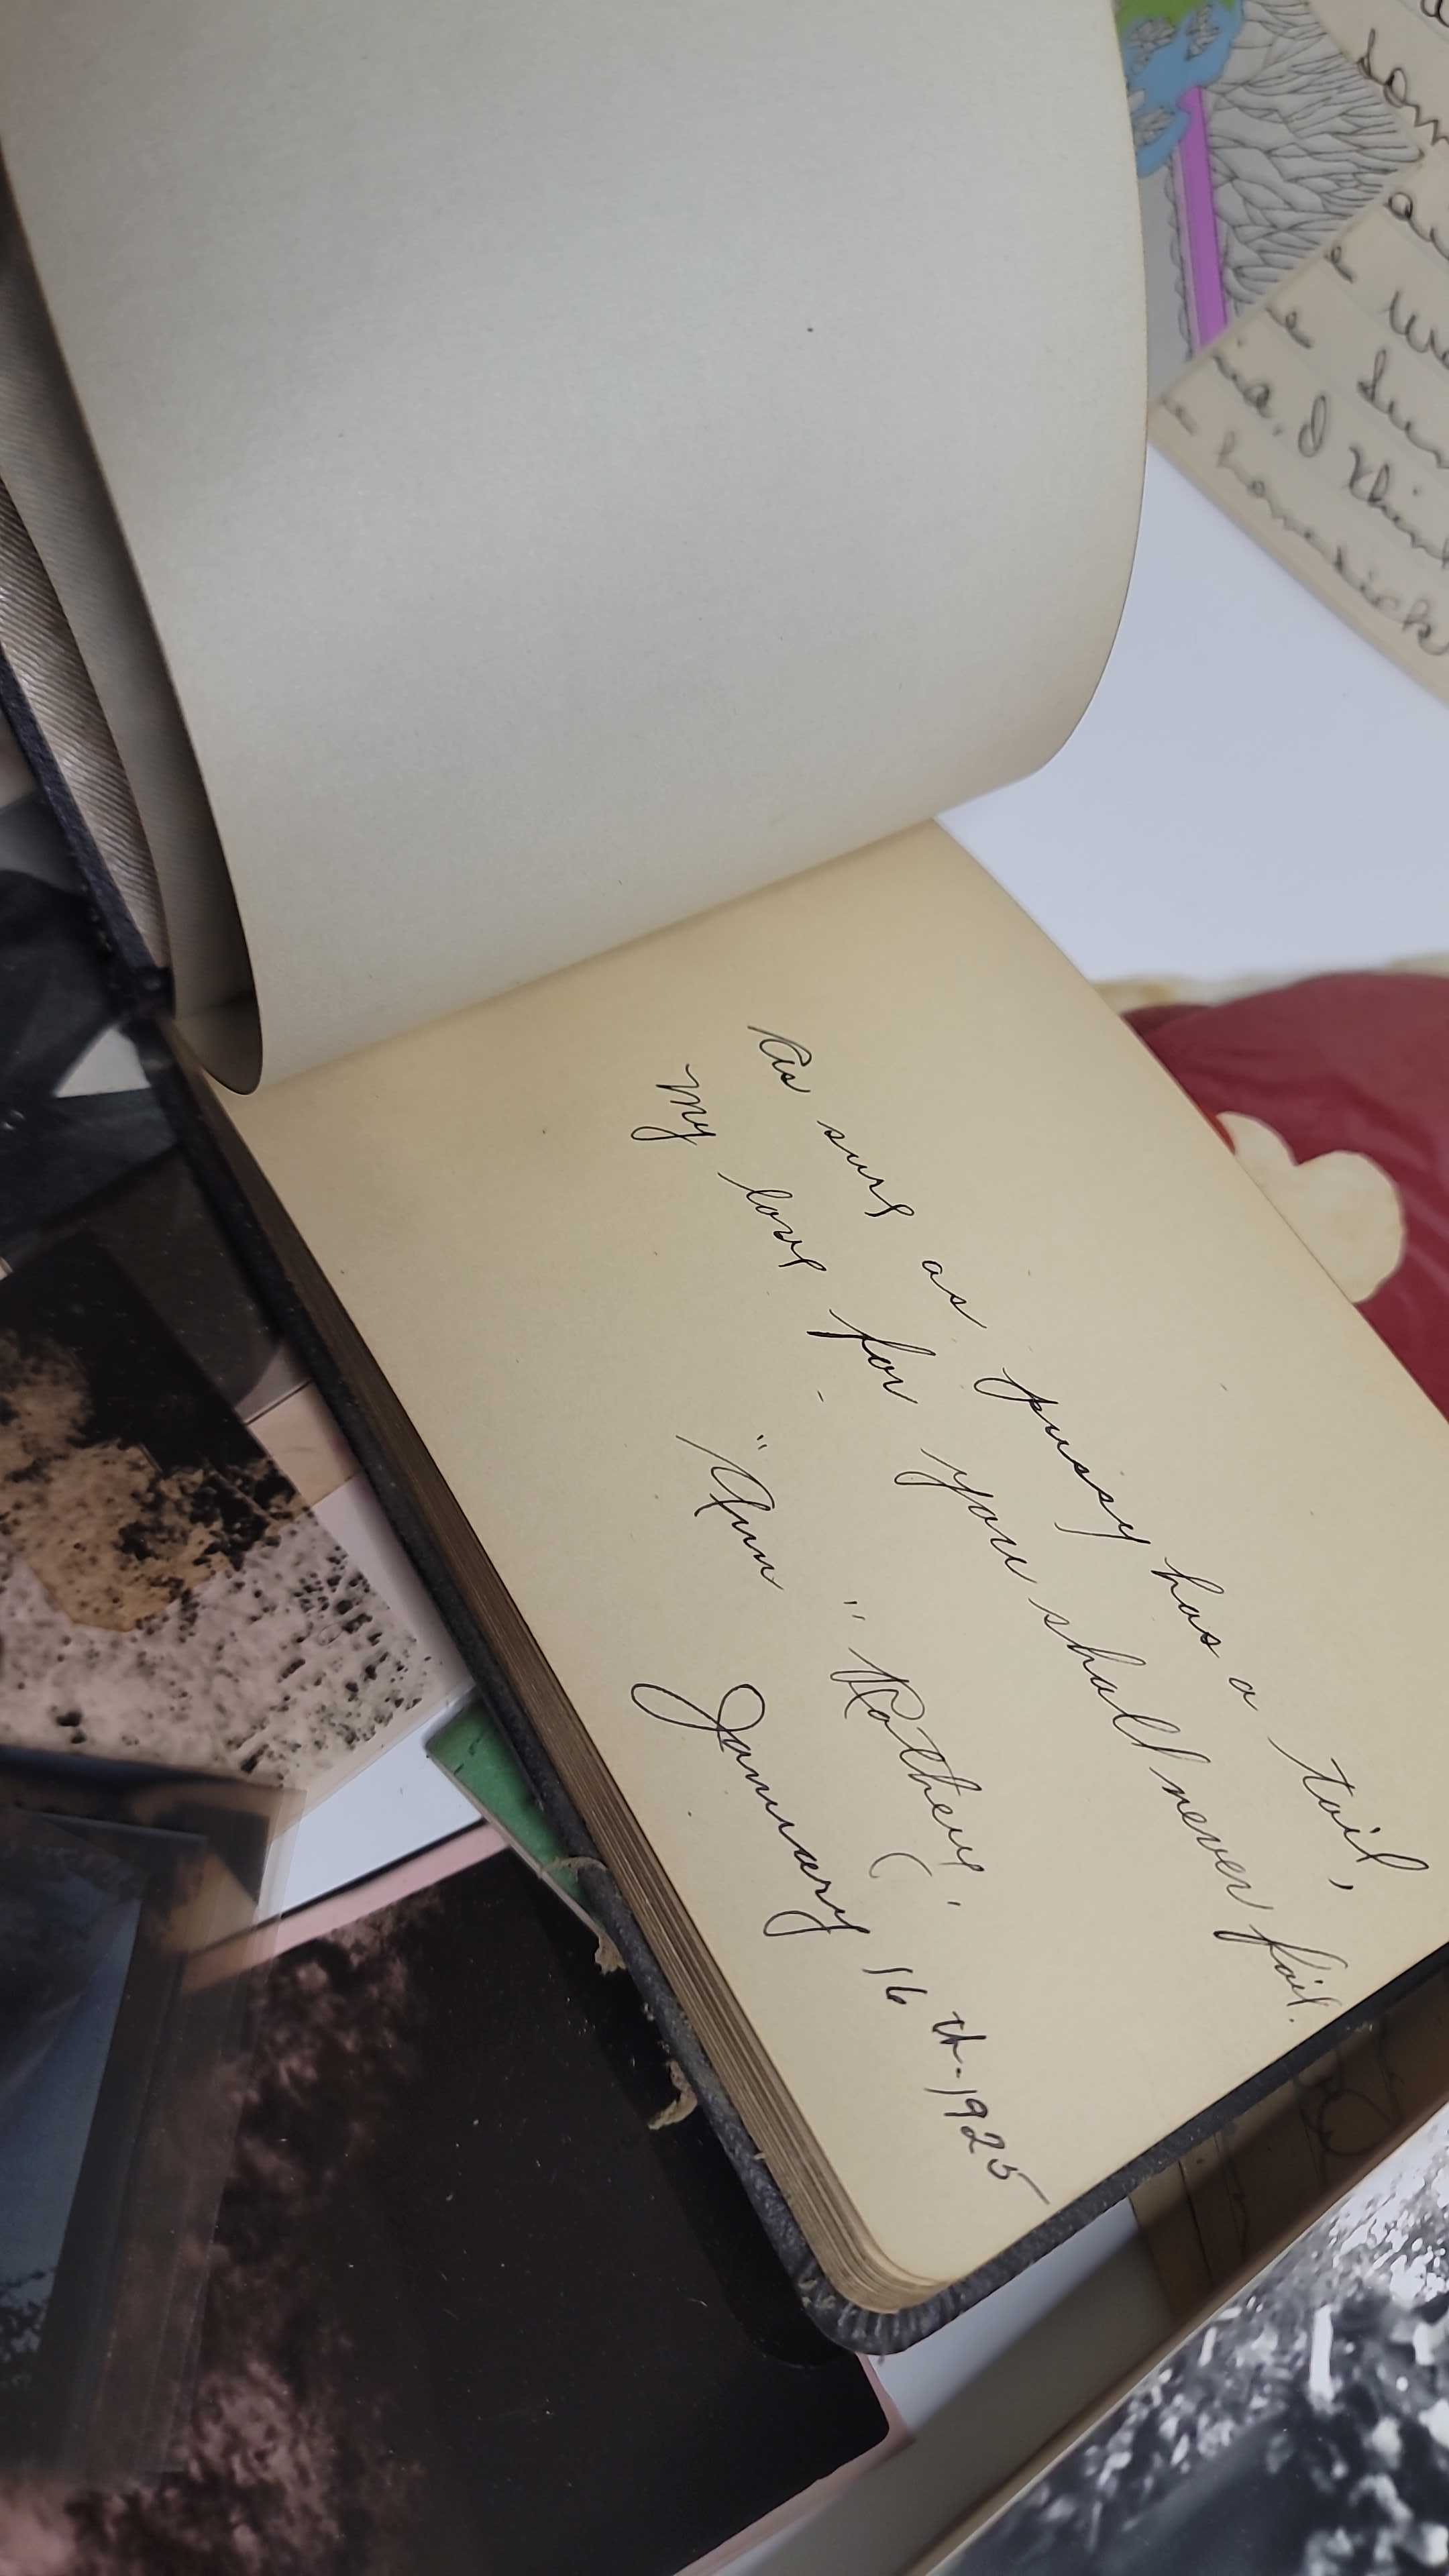 As sure as pussy has a tail,
My love for you shall never fail.
"Ann" Rothey.
January 16th-1925
som
a we
e Sun
ina. I think
homesick